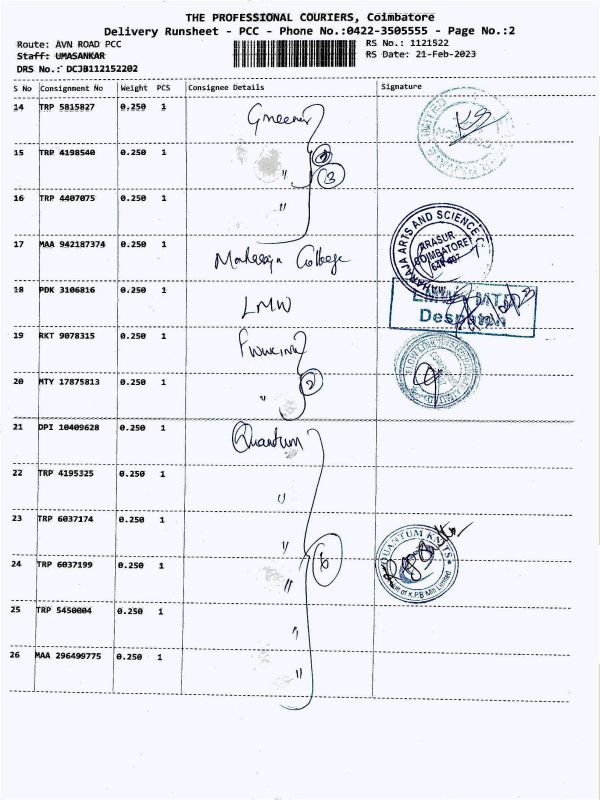 THE PROFESSIONAL COURIERS, Coimbatore
Delivery Runsheet - PCC - Phone No.:0422-3505555 - Page No.:2
Route: AVN ROAD PCC
RS No.: 1121522
Staff: UMASANKAR
RS Date: 21-Feb-2023
DRS No.: DCJB112152202
S No Consignment No Weight PCS Consignee Details Signature
14 TRP 5815827 0.250 1
15 TRP 4198540 0.250 1 " 3
16 TRP 4407075 0.250 1 "
17 MAA 942187374 0.250 1 Maharaja College
MAHARAJA ARTS AND SCIENCE
ARASUR
COIMBATORE
18 PDK 3106816 0.250 1 LMW
Despatch
19 RKT 9078315 0.250 1
20 MTY 17875813 0.250 1 " 2
21 DPI 10409628 0.250 1 Quantum
22 TRP 4195325 0.250 1 "
23 TRP 6037174 0.250 1 "
24 TRP 6037199 0.250 1 " 6
QUANTUM KNITS
Unit of K.P.R Mill Limited
25 TRP 5450004 0.250 1 "
26 MAA 296499775 0.250 1 "